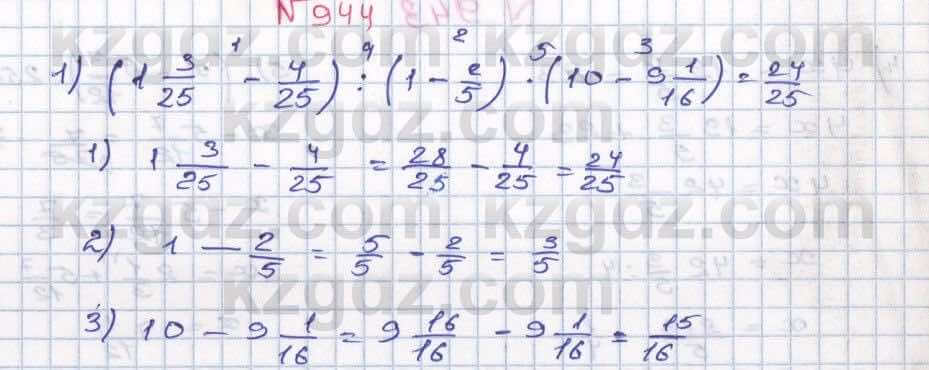 №944
1) (1 3/25 - 4/25) : (1 - 2/5) · (10 - 9 1/16) = 24/25
1) 1 3/25 - 4/25 = 28/25 - 4/25 = 24/25
2) 1 - 2/5 = 5/5 - 2/5 = 3/5
3) 10 - 9 1/16 = 9 16/16 - 9 1/16 = 15/16
kzgdz.com
kzgdz.com
kzgdz.com
kzgdz.com